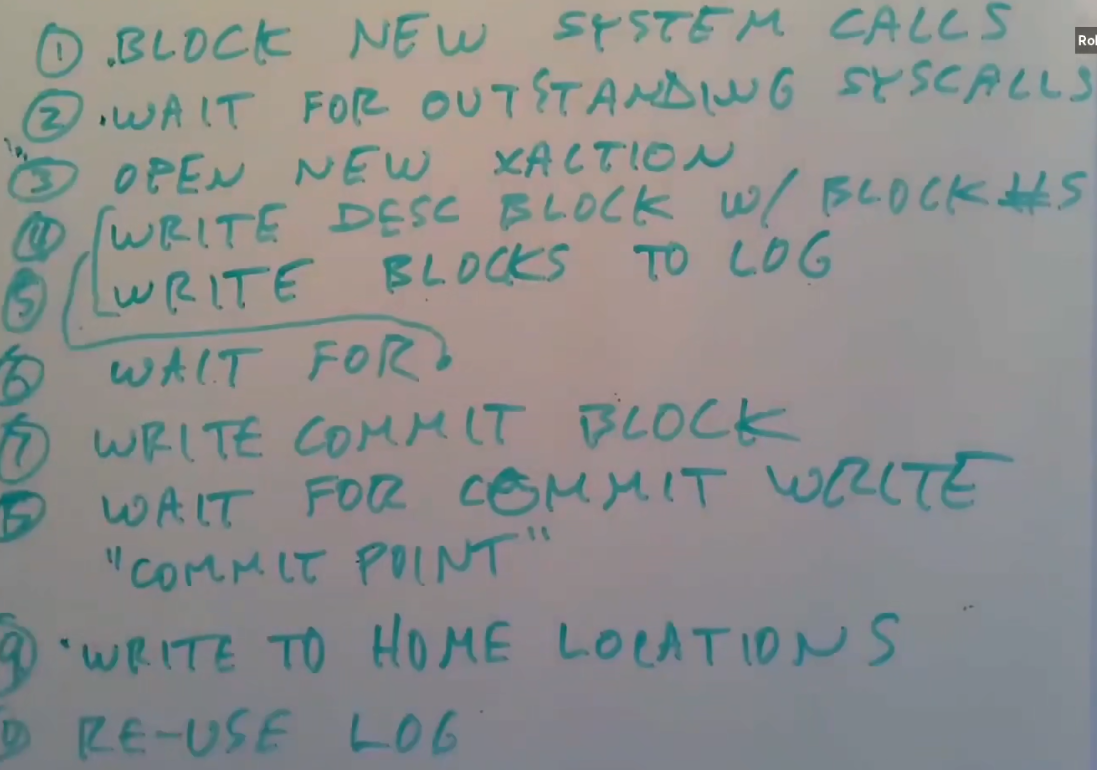 ① .BLOCK NEW SYSTEM CALLS
Rol
② .WAIT FOR OUTSTANDING SYSCALLS
③ OPEN NEW XACTION
④ WRITE DESC BLOCK W/ BLOCK #S
⑤ WRITE BLOCKS TO LOG
⑥ WAIT FOR
⑦ WRITE COMMIT BLOCK
⑧ WAIT FOR COMMIT WRITE
"COMMIT POINT"
⑨ ·WRITE TO HOME LOCATIONS
⑩ RE-USE LOG